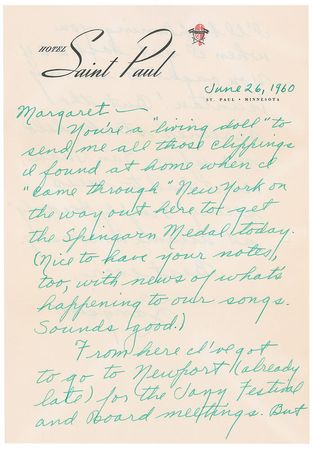 HOTEL
Saint Paul
June 26, 1960
ST. PAUL • MINNESOTA
Margaret —
You're a "living doll" to
send me all those clippings
I found at home when I
"came through" New York on
the way out here to get
the Spingarn Medal today.
(Nice to have your notes,
too, with news of what's
happening to our songs.
Sounds good.)
From here I've got
to go to Newport (already
late) for the Jazz Festival
and Board meetings. But